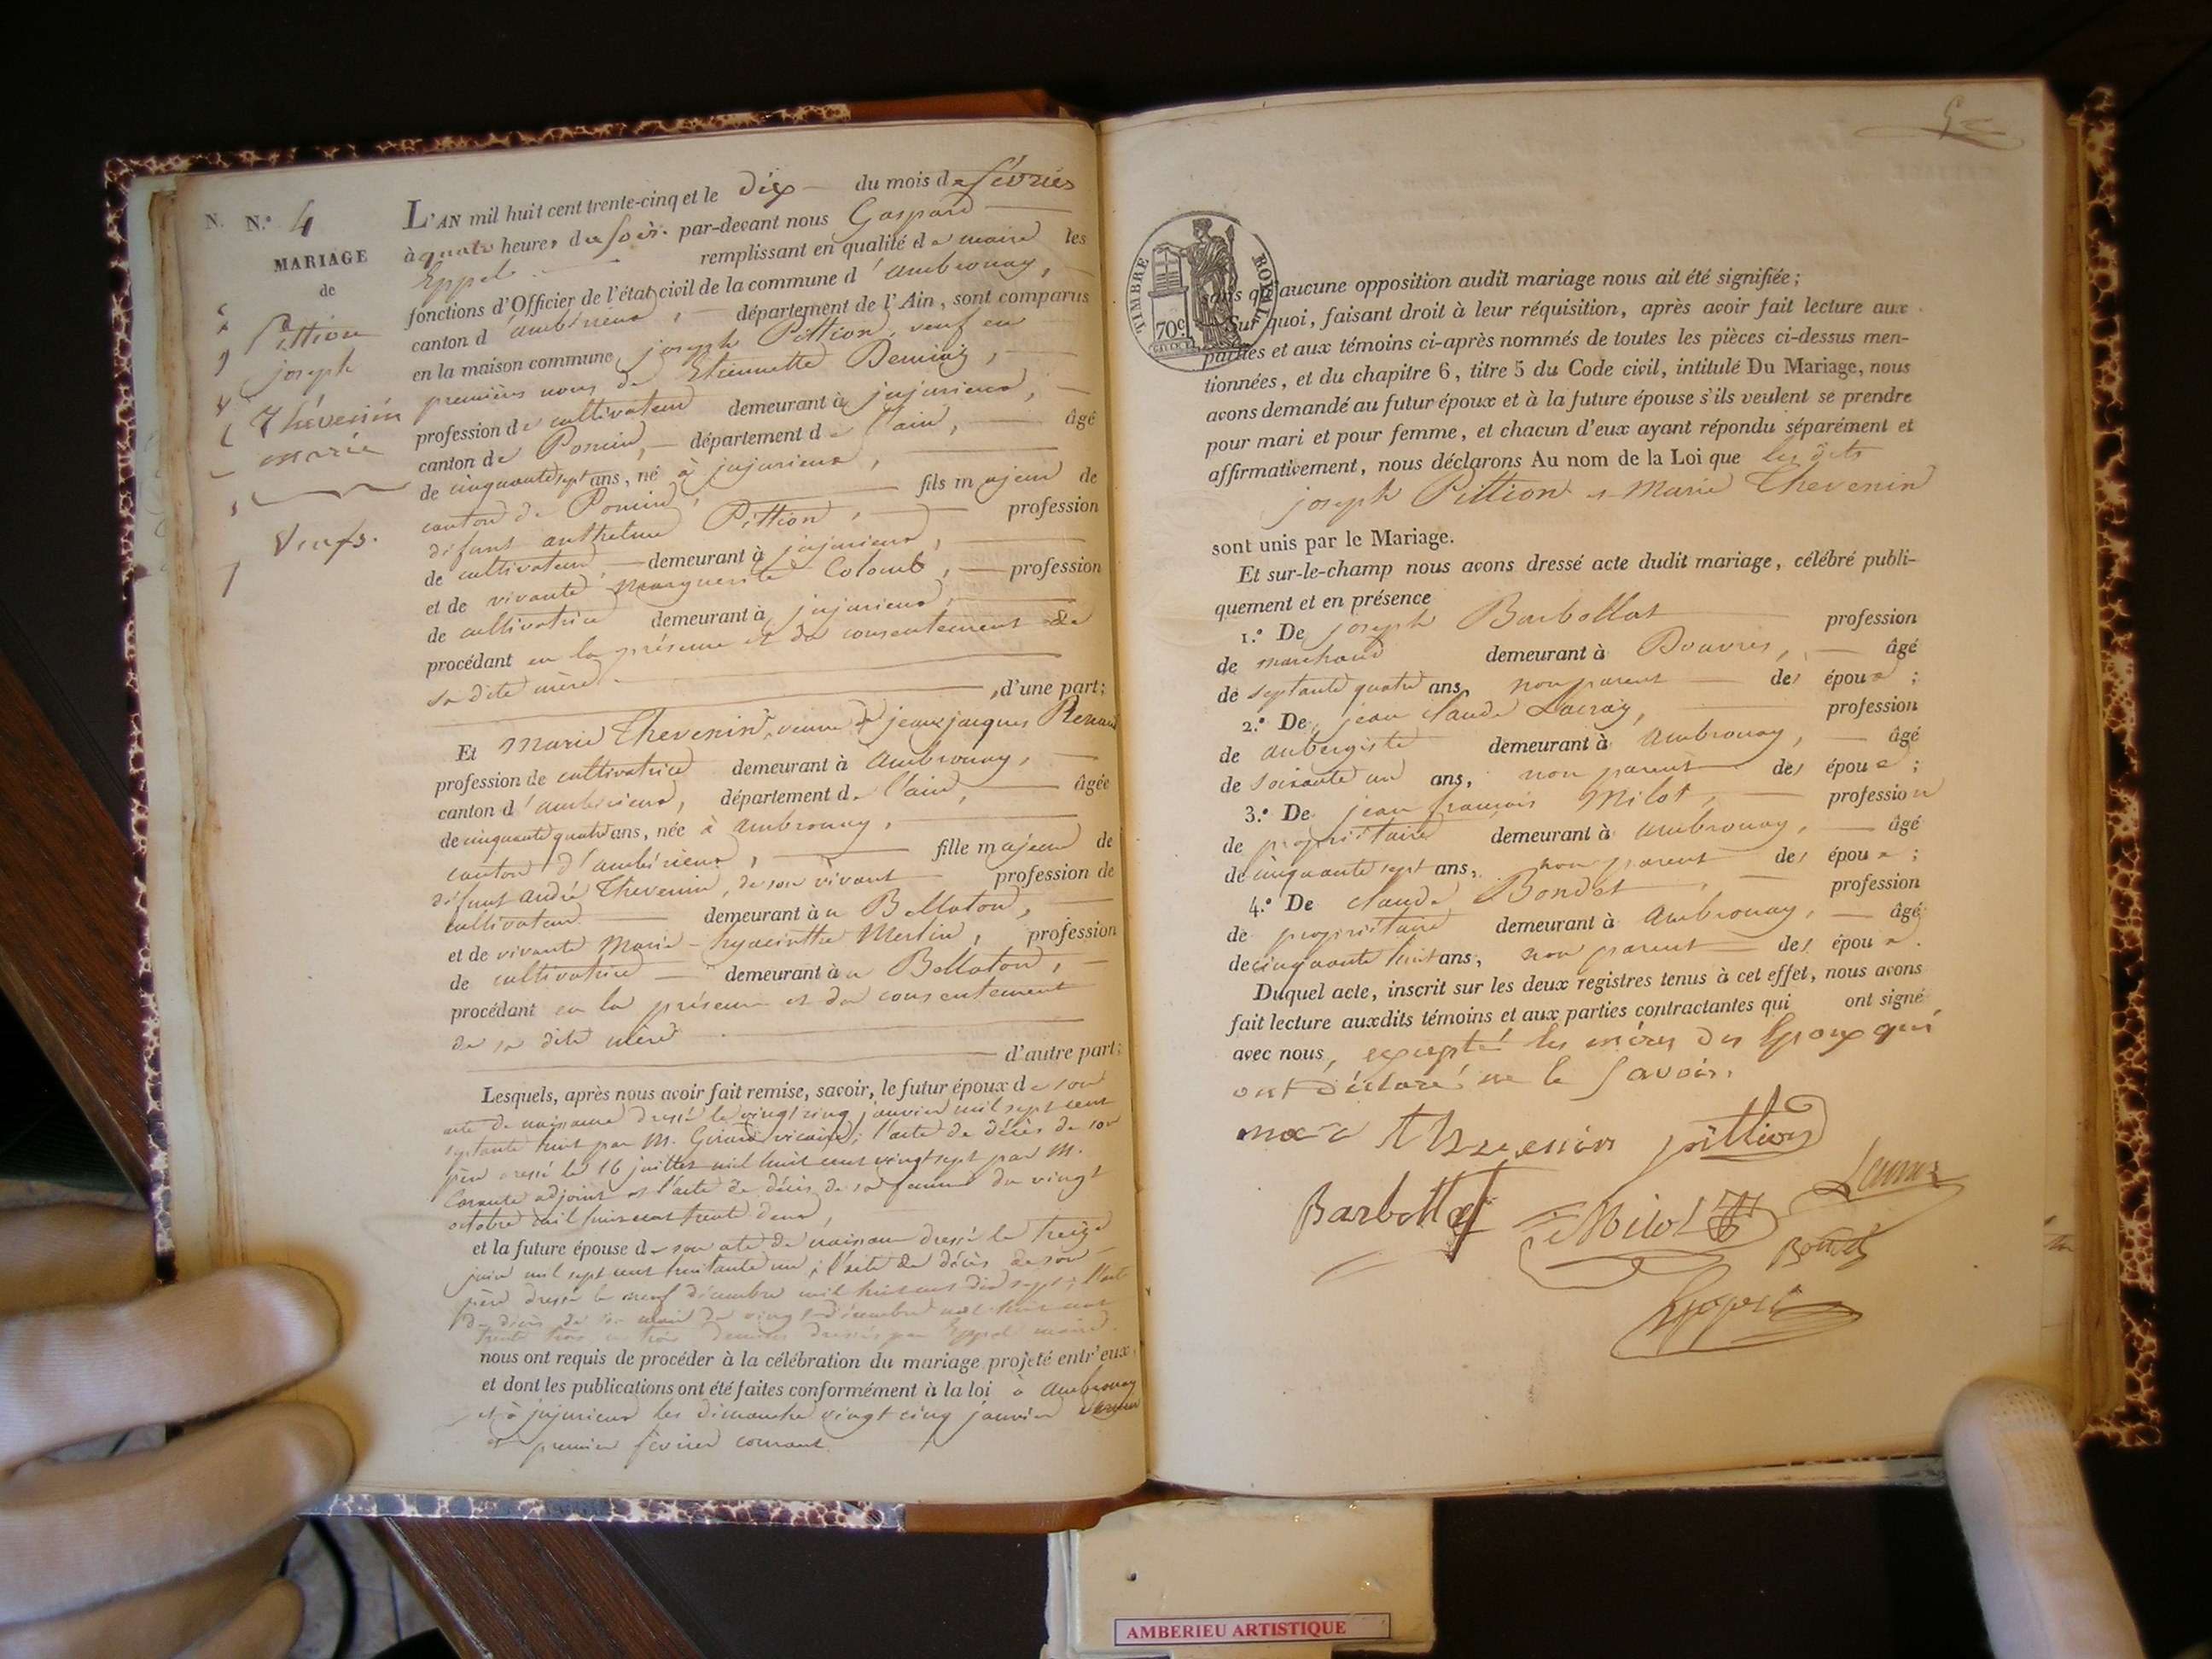 N. N.° 4
MARIAGE
de
Pittion
joseph
Thévenin
marie
Veufs.
L'AN mil huit cent trente-cinq et le dix du mois de février
à quatre heures du soir. par-devant nous Gaspard
Eppel remplissant en qualité de maire les
fonctions d'Officier de l'état civil de la commune d'ambronay,
canton d'ambérieux, département de l'Ain, sont comparus
en la maison commune joseph Pittion, veuf en
premières noces de Etiennette Demiaz,
profession de cultivateur demeurant à jujurieux,
canton de Poncin, département de l'ain, âgé
de cinquante sept ans, né à jujurieux,
canton de Poncin, fils majeur de
défunt anthelme Pittion, profession
de cultivateur, demeurant à jujurieux,
et de vivante Marguerite Colomb, profession
de cultivatrice demeurant à jujurieux,
procédant en la présence et du consentement de
sa dite mère. , d'une part;
Et Marie Thevenin, veuve de jean jacques Renaud
profession de cultivatrice demeurant à Ambronay,
canton d'ambérieux, département de l'ain, âgée
de cinquante quatre ans, née à ambronay,
canton d'ambérieux, fille majeure de
défunt andré Thevenin, de son vivant profession de
cultivateur demeurant à Bellaton,
et de vivante Marie-hyacinthe Merlin, profession
de cultivatrice demeurant à Bellaton,
procédant en la présence et du consentement
de sa dite mère.
d'autre part;
Lesquels, après nous avoir fait remise, savoir, le futur époux de son
acte de naissance dressé le vingt cinq janvier mil sept cent
septante huit par M. Girard vicaire; l'acte de décès de son
père dressé le 16 juillet mil huit cent vingt sept par M.
adjoint et l'acte de décès de sa femme du vingt
octobre mil huit cent trente deux,
et la future épouse de son acte de naissance dressé le treize
juin mil sept cent huitante un; l'acte de décès de son
père dressé le neuf décembre mil huit cent dix sept; l'acte
de décès de son mari du vingt décembre mil huit cent
trente trois dressés par Eppel maire.
nous ont requis de procéder à la célébration du mariage projeté entr'eux,
et dont les publications ont été faites conformément à la loi à ambronay
et à jujurieux les dimanche vingt cinq janvier dernier
et premier février courant.
TIMBRE ROYAL
70c
sans qu'aucune opposition audit mariage nous ait été signifiée;
Sur quoi, faisant droit à leur réquisition, après avoir fait lecture aux
parties et aux témoins ci-après nommés de toutes les pièces ci-dessus men-
tionnées, et du chapitre 6, titre 5 du Code civil, intitulé Du Mariage, nous
avons demandé au futur époux et à la future épouse s'ils veulent se prendre
pour mari et pour femme, et chacun d'eux ayant répondu séparément et
affirmativement, nous déclarons Au nom de la Loi que les dits
joseph Pittion et Marie Thevenin
sont unis par le Mariage.
Et sur-le-champ nous avons dressé acte dudit mariage, célébré publi-
quement et en présence
1.° De joseph Barbollat profession
de marchand demeurant à Douvres, âgé
de septante quatre ans, non parent des époux;
2.° De jean claude Lacroix, profession
de aubergiste demeurant à ambronay, âgé
de soixante un ans, non parent des époux;
3.° De jean françois Milot, profession
de propriétaire demeurant à ambronay, âgé
de cinquante sept ans, non parent des époux;
4.° De claude Bondet, profession
de propriétaire demeurant à Ambronay, âgé
de cinquante huit ans, non parent des époux.
Duquel acte, inscrit sur les deux registres tenus à cet effet, nous avons
fait lecture auxdits témoins et aux parties contractantes qui ont signé
avec nous, excepté les mères des époux qui
ont déclaré ne le savoir.
pittion
Barbollat
Milot
Bondet
Eppel
AMBERIEU ARTISTIQUE